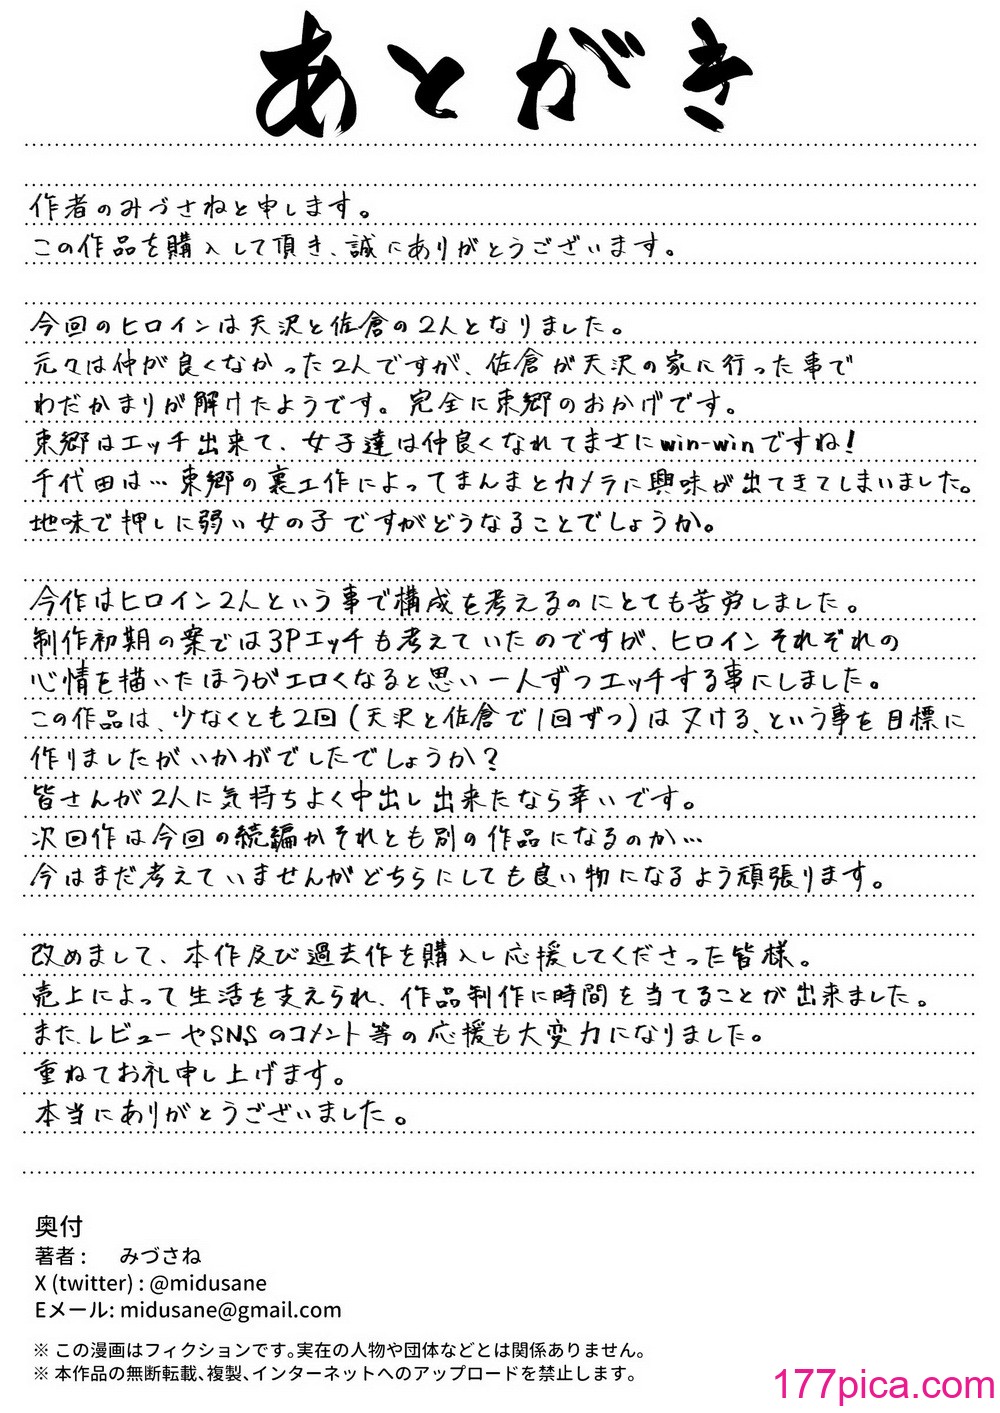 あとがき
作者のみづさねと申します。
この作品を購入して頂き、誠にありがとうございます。
今回のヒロインは天沢と佐倉の2人となりました。
元々は仲が良くなかった2人ですが、佐倉が天沢の家に行った事で
わだかまりが解けたようです。完全に東郷のおかげです。
東郷はエッチ出来て、女子達は仲良くなれてまさにwin-winですね!
千代田は…東郷の裏工作によってまんまとカメラに興味が出てきてしまいました。
地味で押しに弱い女の子ですがどうなることでしょうか。
今作はヒロイン2人という事で構成を考えるのにとても苦労しました。
制作初期の案では3Pエッチも考えていたのですが、ヒロインそれぞれの
心情を描いたほうがエロくなると思い一人ずつエッチする事にしました。
この作品は、少なくとも2回(天沢と佐倉で1回ずつ)はヌける、という事を目標に
作りましたがいかがでしたでしょうか?
皆さんが2人に気持ちよく中出し出来たなら幸いです。
次回作は今回の続編かそれとも別の作品になるのか…
今はまだ考えていませんがどちらにしても良い物になるよう頑張ります。
改めまして、本作及び過去作を購入し応援してくださった皆様。
売上によって生活を支えられ、作品制作に時間を当てることが出来ました。
また、レビューやSNSのコメント等の応援も大変力になりました。
重ねてお礼申し上げます。
本当にありがとうございました。
奥付
著者: みづさね
X (twitter) : @midusane
Eメール: midusane@gmail.com
※ この漫画はフィクションです。実在の人物や団体などとは関係ありません。
※ 本作品の無断転載、複製、インターネットへのアップロードを禁止します。
177pica.com